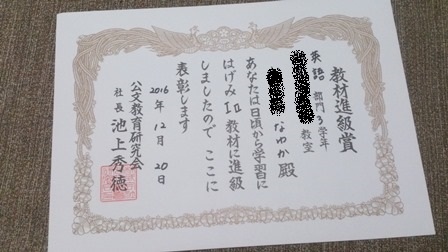 教材進級賞
英語 部門 3学年
教室
なゆか殿
あなたは日頃から学習に
はげみ Ia 教材に進級
しましたので ここに
表彰します
2016年12月20日
公文教育研究会
社長 池上秀徳